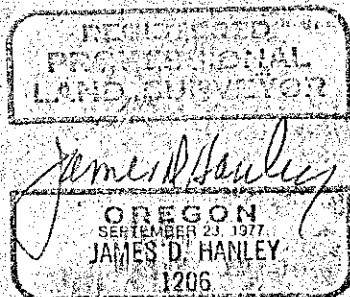 REGISTERED
PROFESSIONAL
LAND SURVEYOR
James D Hanley
OREGON
SEPTEMBER 23, 1977
JAMES D. HANLEY
1206